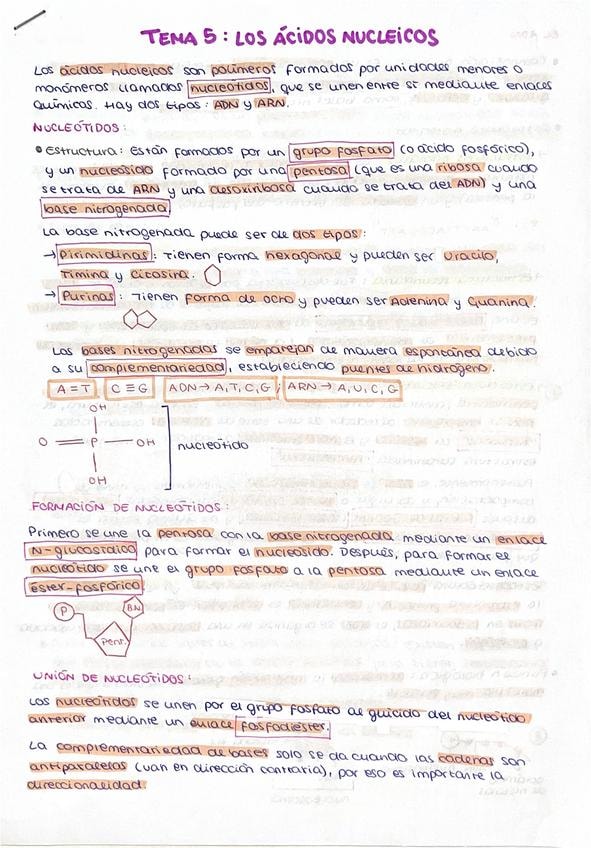 TEMA 5: LOS ÁCIDOS NUCLEICOS
Los ácidos nucleicos son polímeros formados por unidades menores o
monómeros llamados nucleótidos, que se unen entre sí mediante enlaces
químicos. Hay dos tipos: ADN y ARN.
NUCLEÓTIDOS:
• Estructura: Están formados por un grupo fosfato (o ácido fosfórico),
y un nucleósido formado por una pentosa (que es una ribosa cuando
se trata de ARN y una desoxiribosa cuando se trata del ADN) y una
base nitrogenada
La base nitrogenada puede ser de dos tipos:
→ Pirimidinas: Tienen forma hexagonal y pueden ser Uracilo,
Timina y Citosina.
→ Purinas: Tienen forma de ocho y pueden ser Adenina y Guanina.
Las bases nitrogenadas se emparejan de manera espontánea debido
a su complementariedad, estableciendo puentes de hidrógeno.
A=T C≡G ADN → A, T, C, G ; ARN → A, U, C, G
OH
O = P — OH nucleótido
OH
FORMACIÓN DE NUCLEÓTIDOS:
Primero se une la pentosa con la base nitrogenada mediante un enlace
N-glucosídico para formar el nucleósido. Después, para formar el
nucleótido se une el grupo fosfato a la pentosa mediante un enlace
éster-fosfórico
P BN
Pent.
UNIÓN DE NUCLEÓTIDOS:
Los nucleótidos se unen por el grupo fosfato al glúcido del nucleótido
anterior mediante un enlace fosfodiéster.
La complementariedad de bases solo se da cuando las cadenas son
antiparalelas (van en dirección contraria), por eso es importante la
direccionalidad.